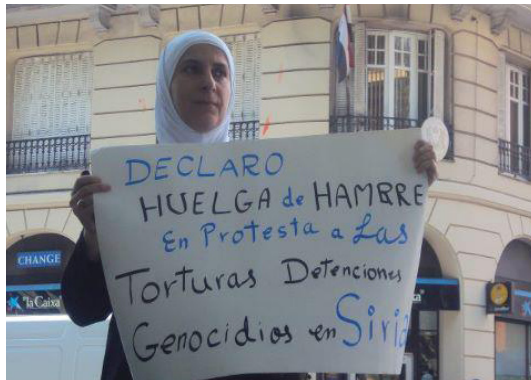 DECLARO
HUELGA de HAMBRE
En Protesta a Las
Torturas Detenciones
Genocidios en Siria
CHANGE
"la Caixa"